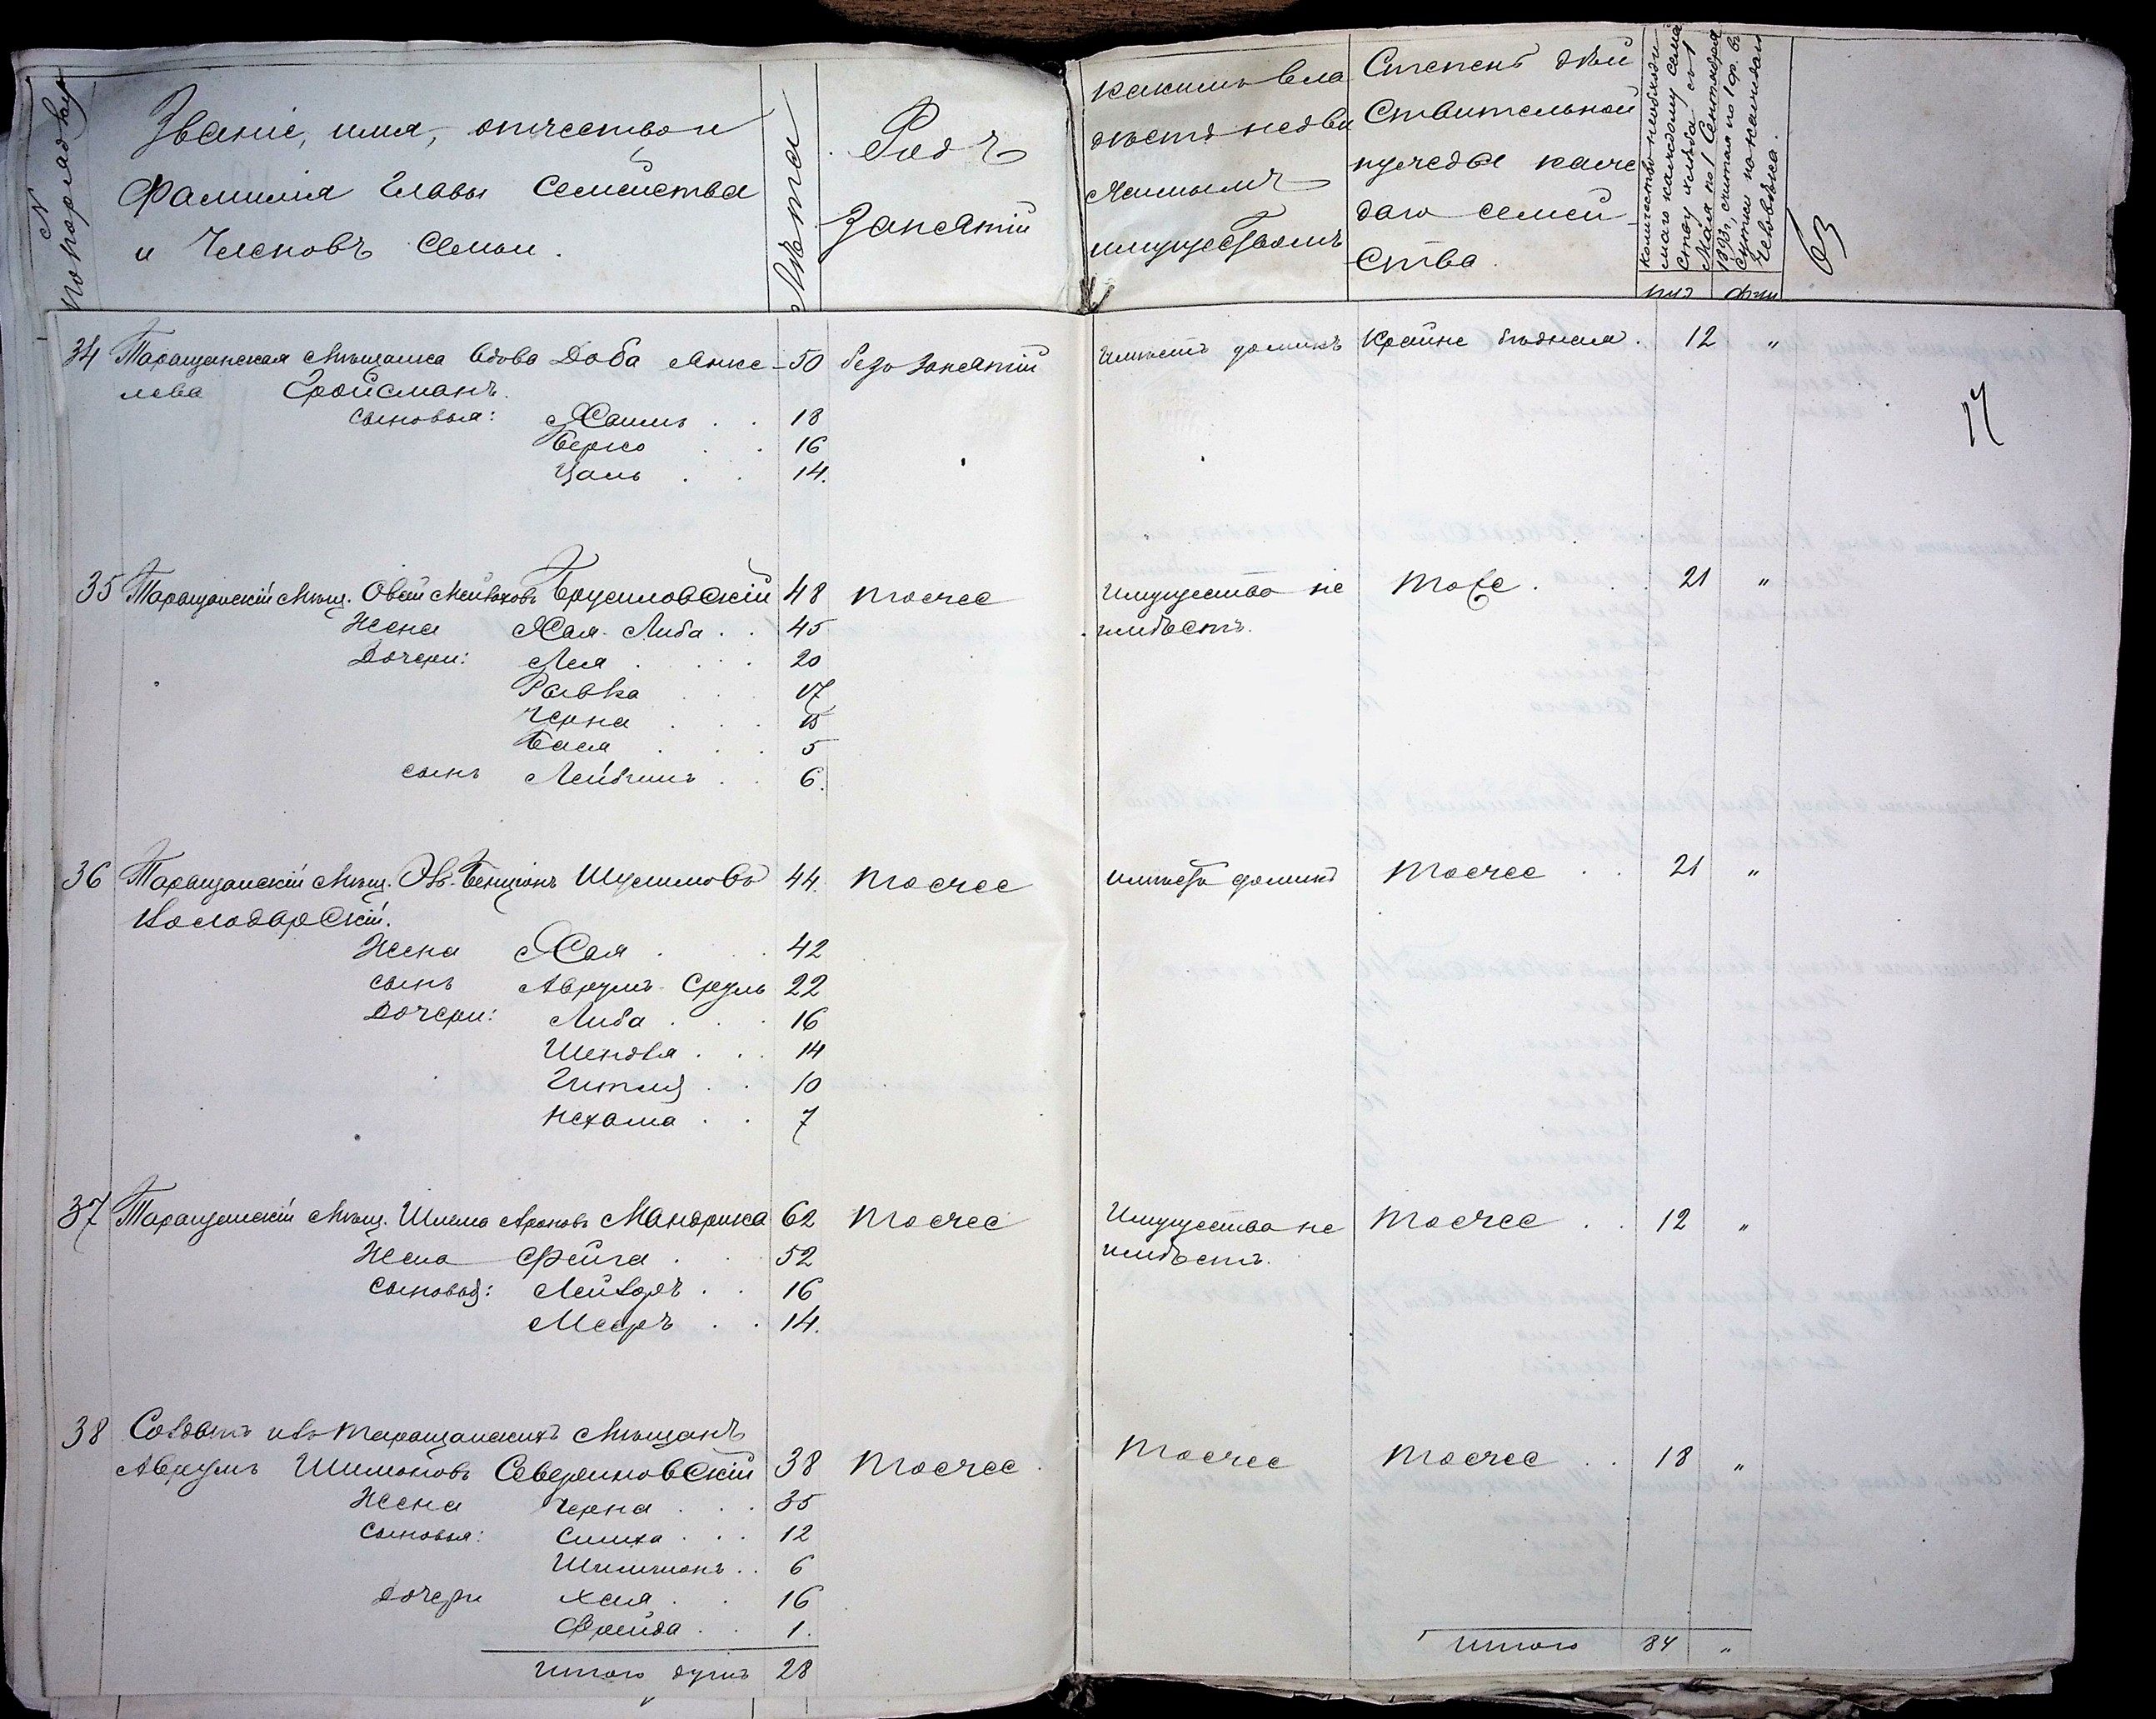 № по порядку
Званіе, имя, отчество и
фамилія главы семейства
и членовъ семьи.
Лѣта
Родъ
занятій
какимъ вла
дѣетъ недви
жимымъ
имуществомъ
Степень дѣй
ствительной
нужды каж
даго семей
ства.
Количество необходи-
маго каждому семей
ству хлѣба съ 1
Мая по 1 Сентября
1893 г, считая по 1 ф. въ
сутки на каждаго
человѣка.
пуд
фун
63
17
34 Таращанская мѣщанка вдова Доба Анке- 50 безъ занятій Имѣетъ домикъ Крайне бѣдная. 12 "
лева Гройсманъ.
сыновья: Хаимъ . . 18
Берко . . 16
Цаль . . 14.
35 Таращанскій мѣщ. Овсѣй Мейлаховъ Брусиловскій 48 тоже Имущества не тоже . . 21 "
Жена Хая-Либа . . 45 имѣетъ.
Дочери: Лея . . . 20
Равка . . 17
Черна . . . 15
Бася . . . 5
сынъ Лейбишъ . . 6.
36 Таращанскій мѣщ. Овъ-Бенціонъ Шулимовъ 44. тоже имѣетъ домикъ тоже . . 21 "
Володарскій.
Жена Хая . . 42
сынъ Аврумъ-Сруль 22
Дочери: Либа . . . 16
Шендля . . . 14
Гитля . . 10
Нехама . . 7
37 Таращанскій мѣщ. Шлема Ароновъ Мандрика 62 тоже Имущества не тоже . . 12 "
Жена Фейга . . 52 имѣетъ.
сыновья: Лейзоръ . . 16
Мееръ . . 14.
38 Солдатъ изъ таращанскихъ мѣщанъ
Аврумъ Шимоновъ Севериновскій 38 тоже . тоже тоже . . 18 "
Жена Черна . . . 35
сыновья: Симха . . . 12
Шимшонъ . . 6
дочери Хая . . 16
Фрейда . . 1.
Итого душъ 28 Итого 84 "